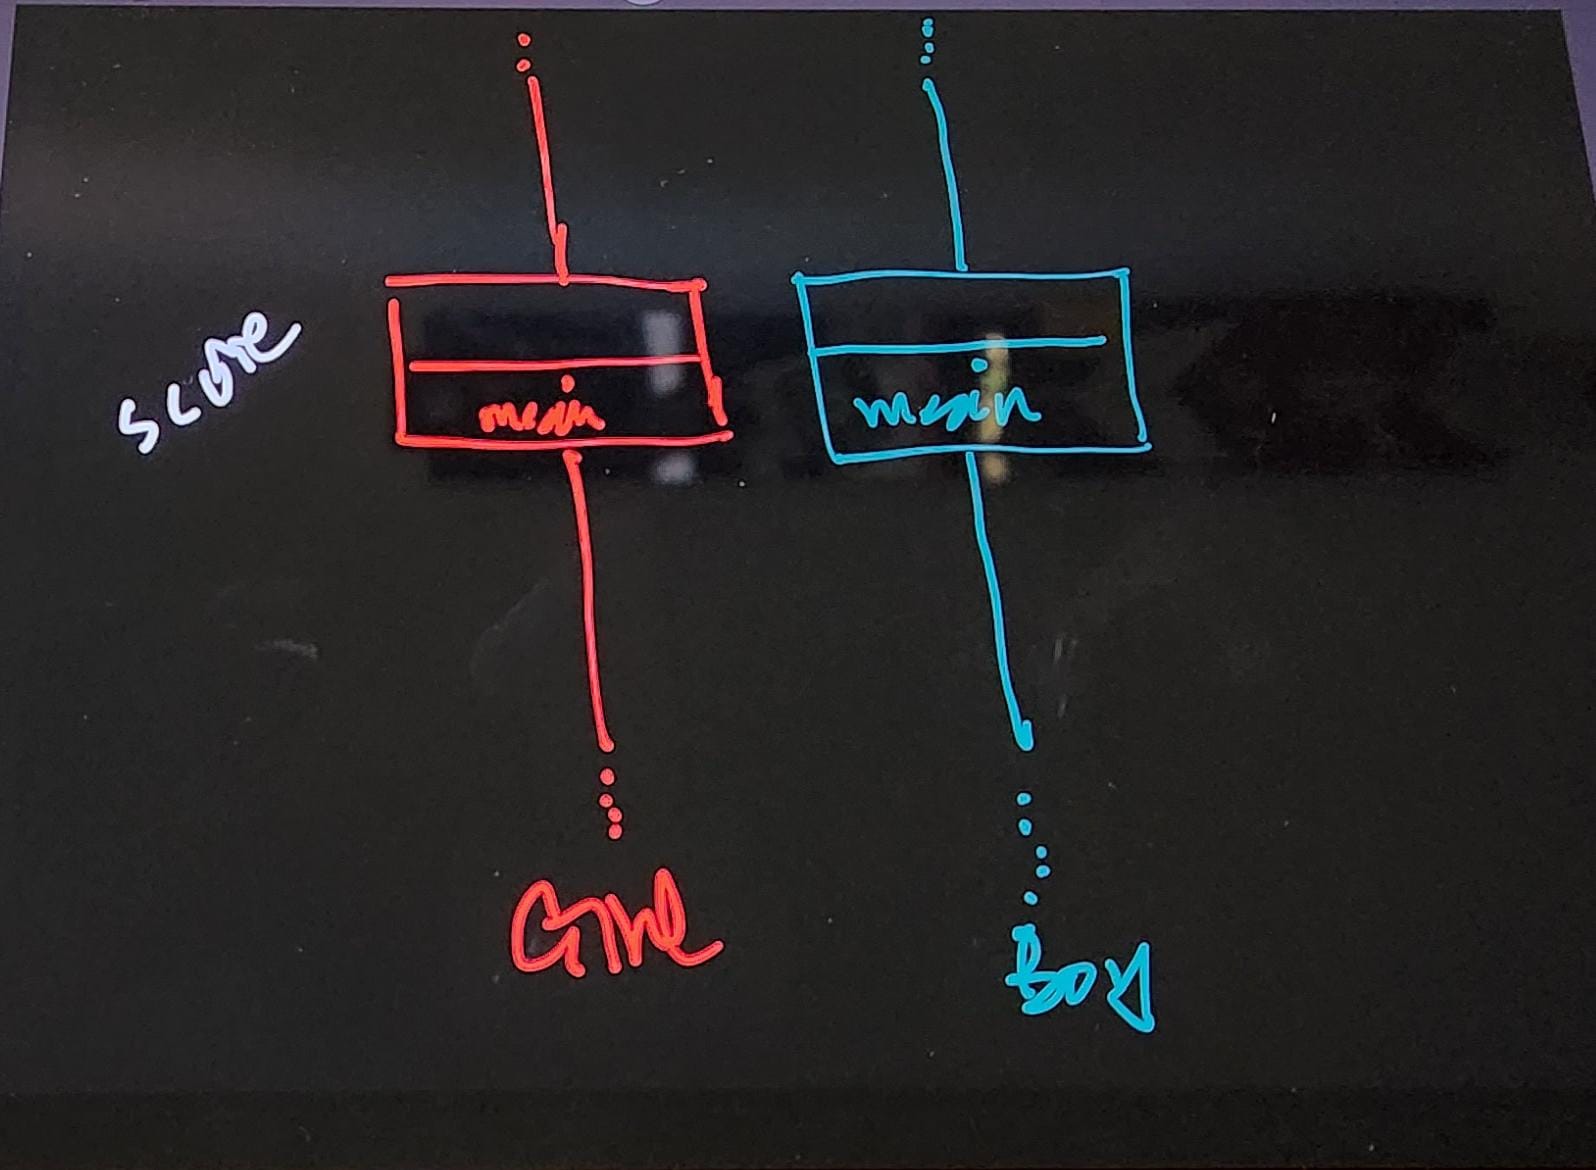 score
mean
mean
Girl
Boy